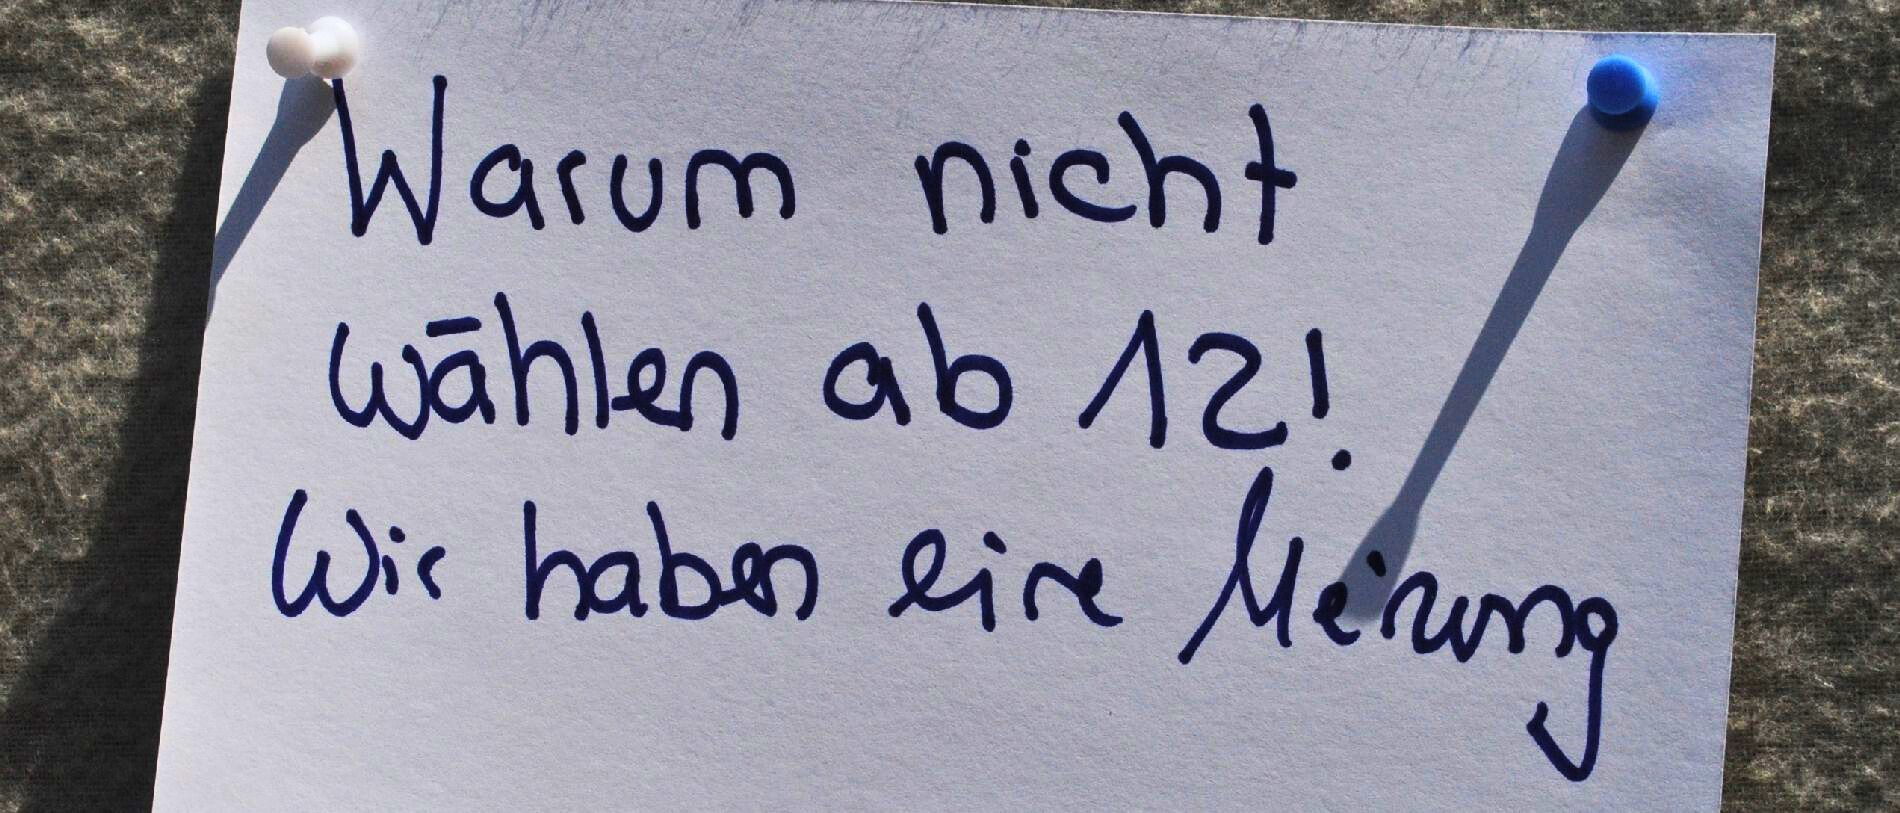 Warum nicht
wählen ab 12!
Wir haben eine Meinung